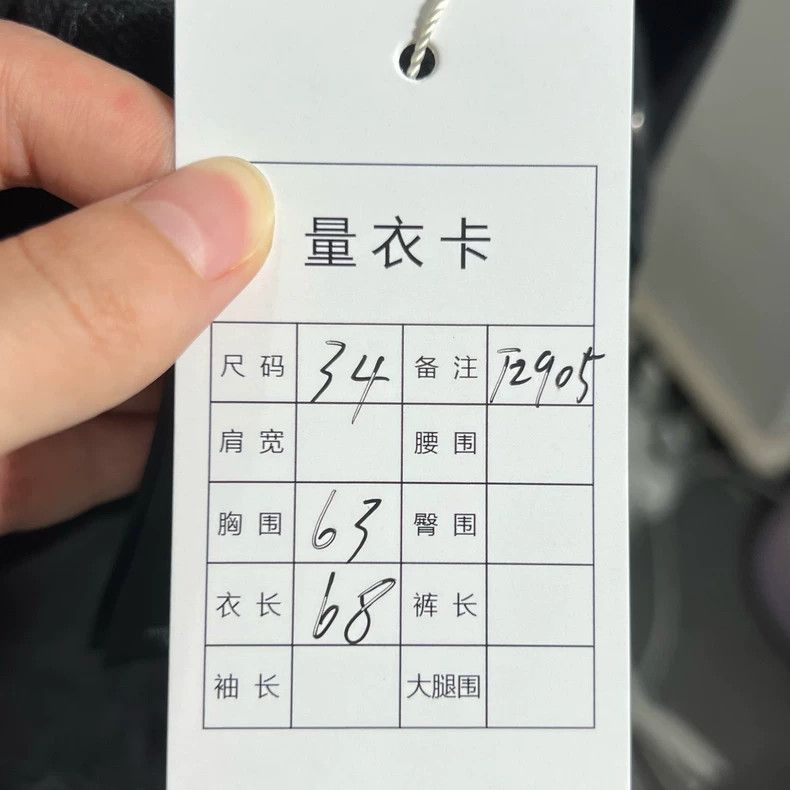 量衣卡
尺码 34 备注 T2905
肩宽 腰围
胸围 63 臀围
衣长 68 裤长
袖长 大腿围